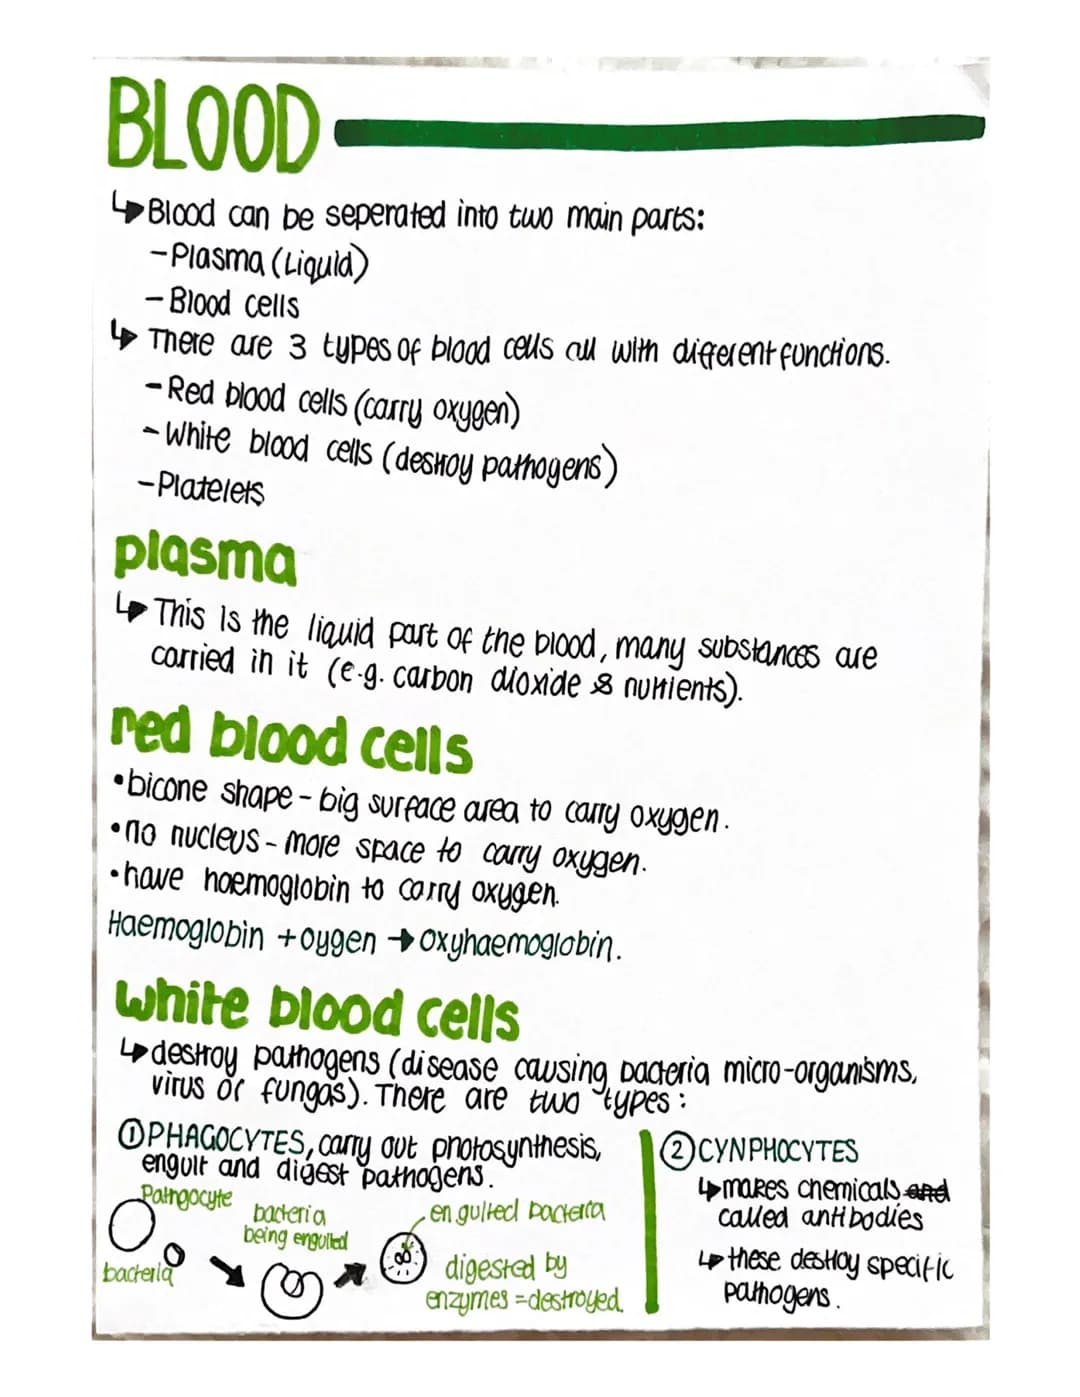 BLOOD
Blood can be seperated into two main parts:
- Plasma (Liquid)
- Blood cells
There are 3 types of blood cells all with different functions.
- Red blood cells (carry oxygen)
- White blood cells (destroy pathogens)
- Platelets
plasma
This is the liquid part of the blood, many substances are
carried in it (e.g. carbon dioxide & nutrients).
red blood cells
•bicone shape - big surface area to carry oxygen.
•no nucleus - more space to carry oxygen.
•have haemoglobin to carry oxygen.
Haemoglobin + oygen → oxyhaemoglobin.
white blood cells
destroy pathogens (disease causing bacteria micro-organisms,
virus or fungas). There are two types:
① PHAGOCYTES, carry out photosynthesis,
engulf and digest pathogens.
Pathgocyte
bacteria
bacteria
being engulfed
engulfed bacteria
digested by
enzymes = destroyed.
② CYNPHOCYTES
makes chemicals and
called antibodies
these destroy specific
pathogens.